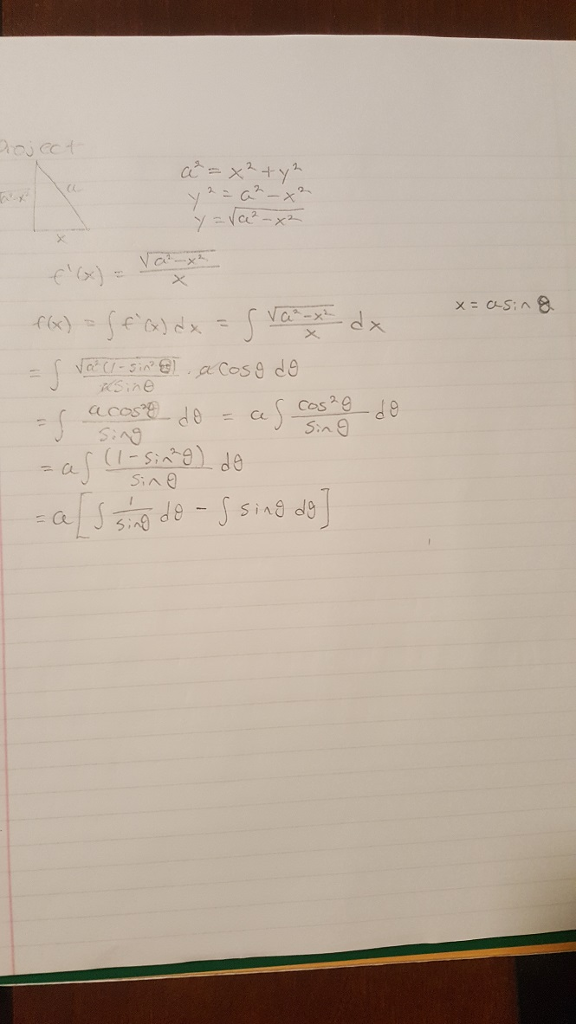 Project
a² = x² + y²
y² = a² - x²
y = √(a² - x²)
√(a²-x²)
a
x
f'(x) = √(a²-x²) / x
f(x) = ∫ f'(x) dx = ∫ √(a²-x²) / x dx
x = a sin θ
= ∫ √(a²(1 - sin²θ)) / a sin θ · a cos θ dθ
= ∫ a cos²θ / sin θ dθ = a ∫ cos²θ / sin θ dθ
= a ∫ (1 - sin²θ) / sin θ dθ
= a [ ∫ 1 / sin θ dθ - ∫ sin θ dθ ]